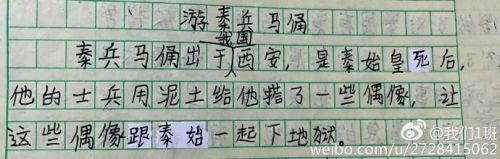 游秦兵马俑
我国
秦兵马俑出于西安,是秦始皇死后,
他的士兵用泥土给他造了一些偶像,让
这些偶像跟秦始一起下地狱。
@我们1班
weibo.com/u/2728415062